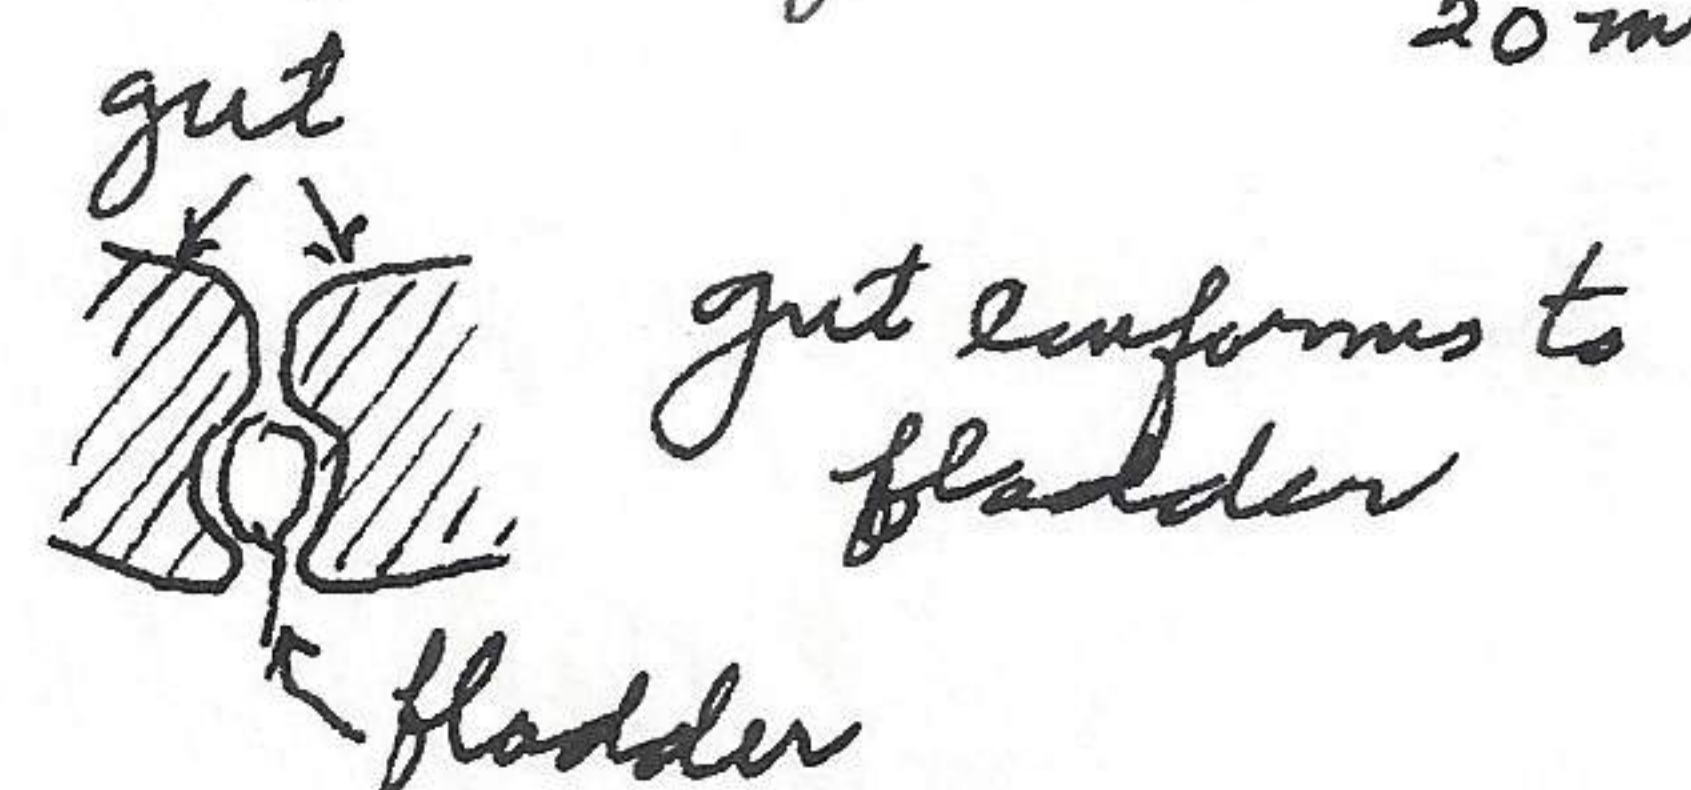 20 m
gut
gut conforms to
fladder
fladder